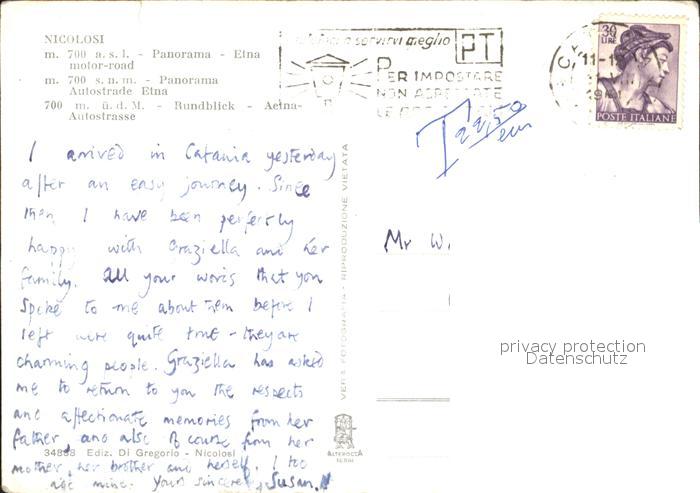 NICOLOSI
m. 700 a. s. l. - Panorama - Etna
motor-road
m. 700 s. n. m. - Panorama
Autostrade Etna
700 m. ü. d. M. - Rundblick - Aetna-
Autostrasse
servirvi meglio
PT
PER IMPOSTARE
NON ASPETTATE
30
LIRE
POSTE ITALIANE
T 22,50
cm
I arrived in Catania yesterday
after an easy journey. Since
then I have been perfectly
happy with Graziella and her
family. All your words that you
spoke to me about them before I
left were quite true - they are
charming people. Graziella has asked
me to return to you the respects
and affectionate memories from her
father, and also of course from her
mother, her brother and herself. I too
mine. Yours sincerely, Susan.
VERA FOTOGRAFIA - RIPRODUZIONE VIETATA
Mr W.
privacy protection
Datenschutz
ALTEROCCA
TERNI
Ediz. Di Gregorio - Nicolosi